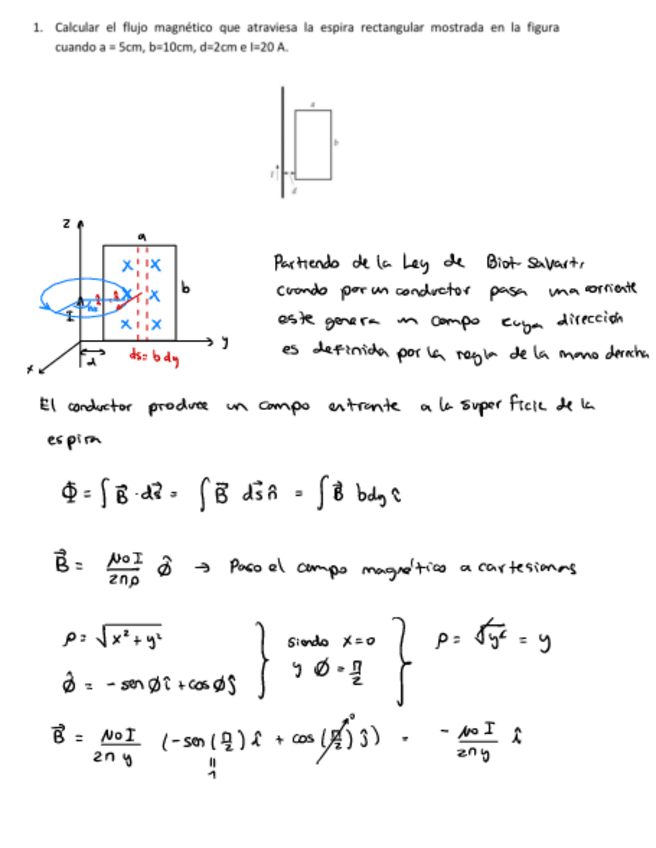 1. Calcular el flujo magnético que atraviesa la espira rectangular mostrada en la figura
cuando a = 5cm, b=10cm, d=2cm e I=20 A.
a
b
I
d
z
a
b
I
y
x
d
ds = b dy
Partiendo de la Ley de Biot-Savart,
cuando por un conductor pasa una corriente
este genera un campo cuya dirección
es definida por la regla de la mano derecha
El conductor produce un campo entrante a la superficie de la
espira
Φ = ∫ B⃗ · ds⃗ = ∫ B⃗ ds⃗ n̂ = ∫ B⃗ bdy î
B⃗ = NoI / 2πρ φ̂ → Paso el campo magnético a cartesianas
ρ = √x² + y² } siendo x=0 } ρ = √y² = y
φ̂ = - sen Ø î + cos Ø ĵ } y Ø = π/2
B⃗ = NoI / 2π y (-sen (π/2) î + cos (π/2) ĵ) = - No I / 2πy î
0
=
1